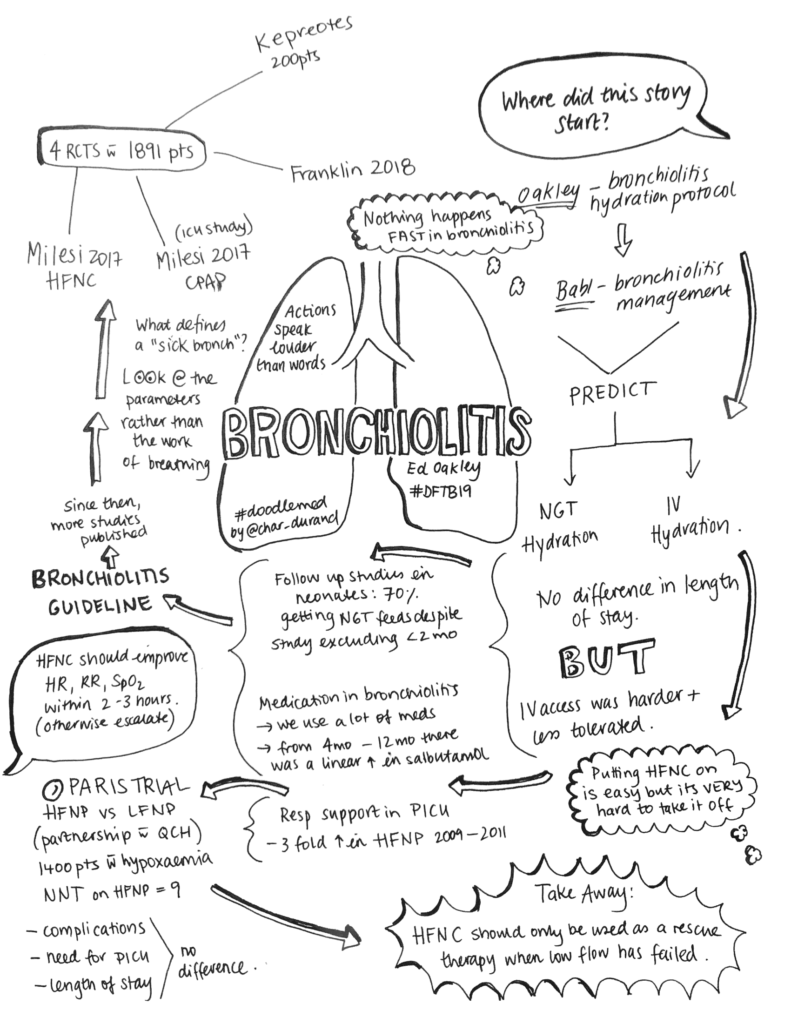 Where did this story
start?
Oakley - bronchiolitis
hydration protocol
Babl - bronchiolitis
management
PREDICT
NGT
Hydration
IV
Hydration.
No difference in length
of stay.
BUT
IV access was harder +
less tolerated.
Putting HFNC on
is easy but its VERY
hard to take it off
Nothing happens
FAST in bronchiolitis
Actions
speak
louder
than words
BRONCHIOLITIS
Ed Oakley
#DFTB19
#doodlemed
by @char_durand
Follow up studies in
neonates: 70%
getting NGT feeds despite
study excluding <2mo
Medication in bronchiolitis
→ we use a lot of meds
→ from 4mo - 12mo there
was a linear ↑ in salbutamol
BRONCHIOLITIS
GUIDELINE
Since then,
more studies
published
What defines
a "sick bronch"?
LOOK @ the
parameters
rather than
the work
of breathing
Kepreotes
200pts
4 RCTS w̄ 1891 pts
Franklin 2018
Milesi 2017
HFNC
(ICU study)
Milesi 2017
CPAP
HFNC should improve
HR, RR, SpO₂
within 2-3 hours.
(otherwise escalate)
Resp support in PICU
- 3 fold ↑ in HFNP 2009-2011
PARIS TRIAL
HFNP vs LFNP
(partnership w̄ QCH)
1400 pts w̄ hypoxaemia
NNT on HFNP = 9
- complications
- need for PICU
- length of stay
no
difference.
Take Away:
HFNC should only be used as a rescue
therapy when low flow has failed.